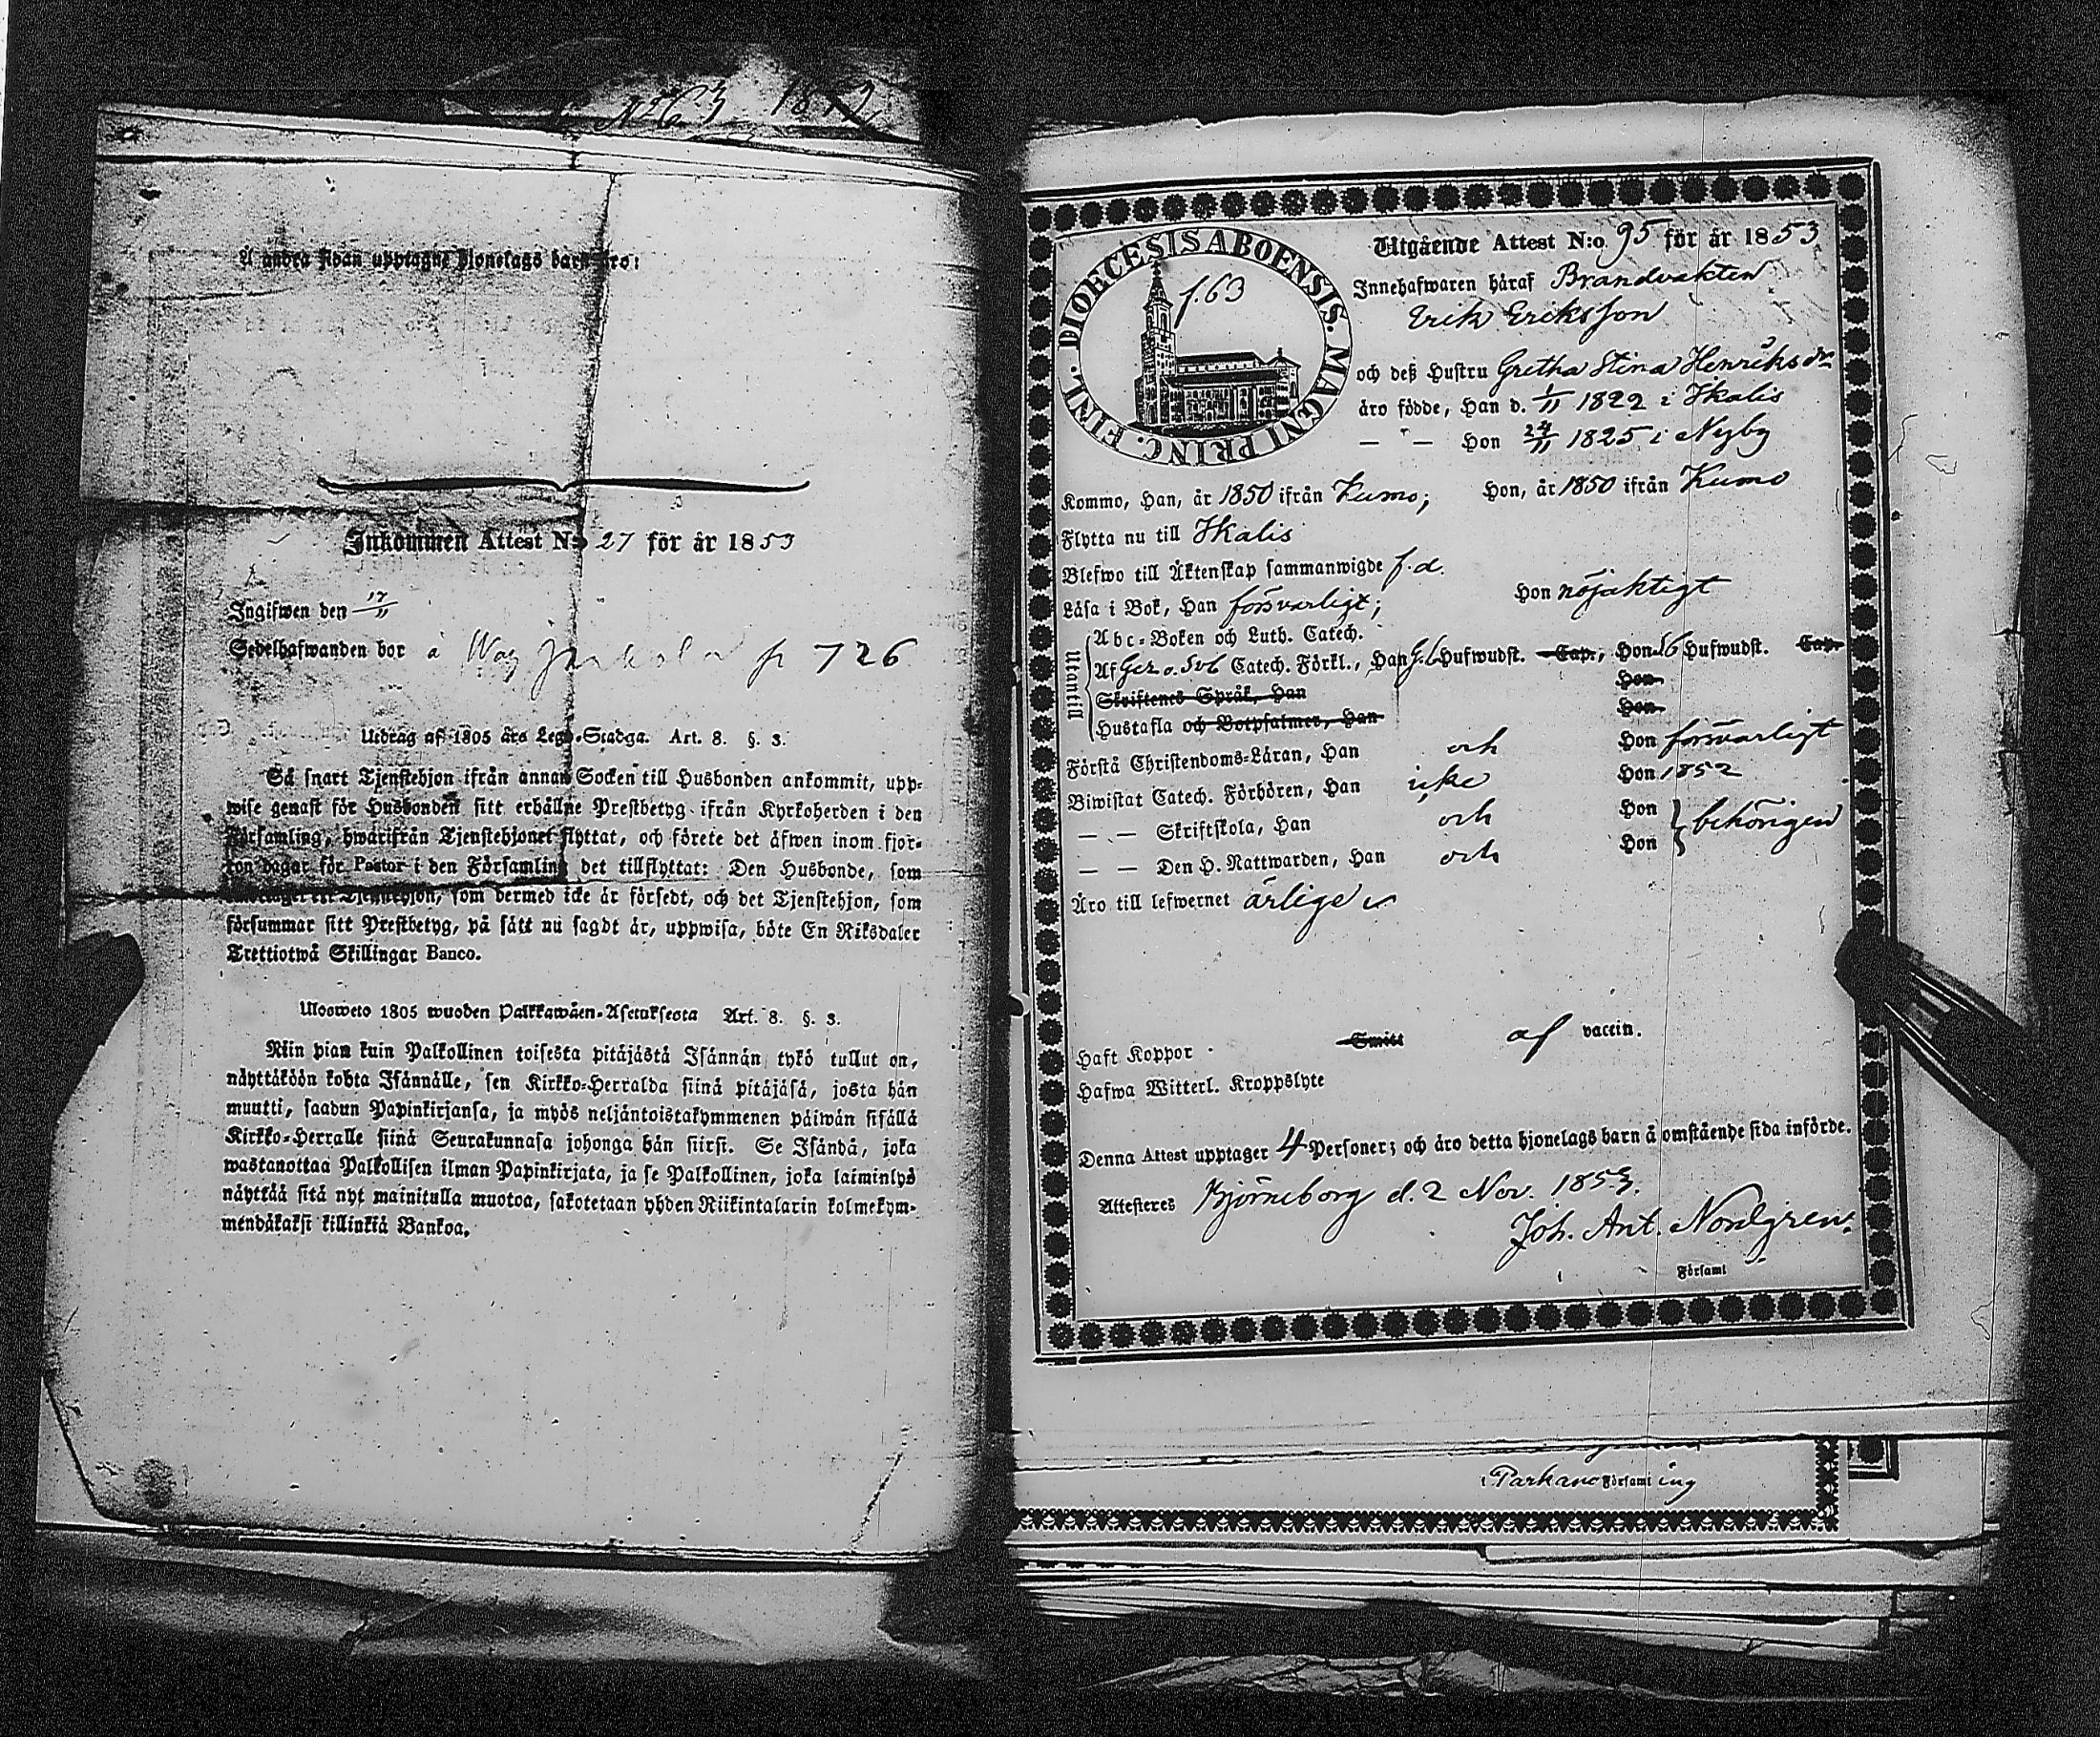 No 63 1852
Å andra sidan upptagne hjonelags barn äro:
Inkommen Attest N:o 27 för år 1853
Ingifwen den 17/11
Sedelhafwanden bor å p 726
Utdrag af 1805 års Lego-Stadga. Art. 8. §. 3.
Så snart Tjenstehjon ifrån annan Socken till Husbonden ankommit, upp-
wise genast för Husbonden sitt erhållne Prestbetyg ifrån Kyrkoherden i den
Församling, hwarifrån Tjenstehjonet flyttat, och förete det äfwen inom fjor-
ton dagar för Pastor i den Församling det tillflyttat: Den Husbonde, som
Tjenstehjon, som dermed icke är försedt, och det Tjenstehjon, som
försummar sitt Prestbetyg, på sätt nu sagdt är, uppwisa, böte En Riksdaler
Trettiotwå Skillingar Banco.
Ulosweto 1805 wuoden Palkkawäen-Asetuksesta Art. 8. §. 3.
Niin pian kuin Palkollinen toisesta pitäjästä Isännän tykö tullut on,
näyttäköön kohta Isännälle, sen Kirkko-Herralda siinä pitäjäsä, josta hän
muutti, saadun Papinkirjansa, ja myös neljäntoistakymmenen päiwän sisällä
Kirkko-Herralle siinä Seurakunnasa johonga hän siirsi. Se Isändä, joka
wastanottaa Palkollisen ilman Papinkirjata, ja se Palkollinen, joka laiminlyö
näyttää sitä nyt mainitulla muotoa, sakotetaan yhden Riikintalarin kolmekym-
mendäkaksi killinkiä Bankoa.
DIOECESIS ABOENSIS. MAGNI PRINC. FINL.
f. 63
Utgående Attest N:o 95 för år 1853
Innehafwaren häraf Brandvakten
Erik Eriksson
och deß Hustru Gretha Stina Henriksdr
äro födde, Han d. 1/11 1822 i Ikalis
— " — Hon 24/11 1825 i Nyby
Kommo, Han, år 1850 ifrån Kumo; Hon, år 1850 ifrån Kumo
Flytta nu till Ikalis
Blefwo till Äktenskap sammanwigde f.d.
Läsa i Bok, Han försvarligt; Hon nöjaktigt
Utantill
Abc-Boken och Luth. Catech.
Af Gez. o. Svb Catech. Förkl., Han g. 6 Hufwudst. Cap., Hon 6 Hufwudst. Cap.
Skriftenes Språk, Han Hon
Hustafla och Botpsalmer, Han Hon
Förstå Christendoms-Läran, Han och Hon försvarligt
Biwistat Catech. Förhören, Han icke Hon 1852
— — Skriftskola, Han och Hon } behörigen
— — Den H. Nattwarden, Han och Hon
Äro till lefwernet ärlige
Haft Koppor Smitt af vaccin.
Hafwa Witterl. Kroppslyte
Denna Attest upptager 4 Personer; och äro detta hjonelags barn å omstående sida införde.
Attesteres Björneborg d. 2 Nov. 1853.
Joh. Ant. Nordgren.
Församl
i Parkano Församling